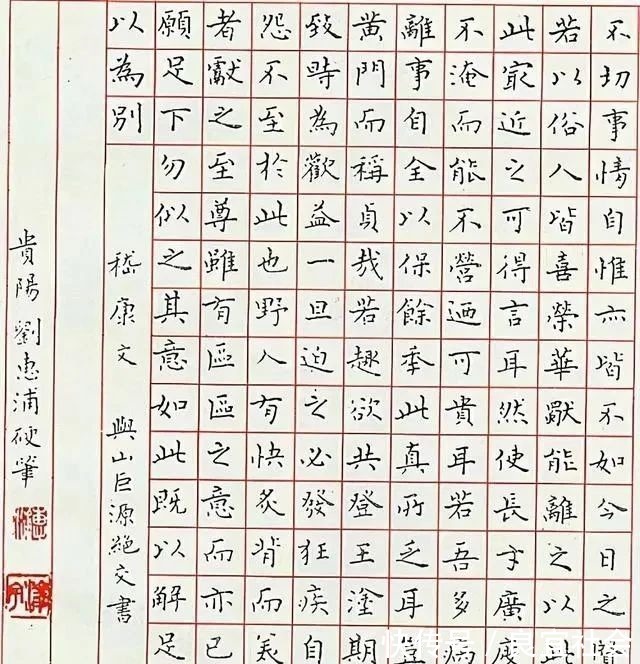 不切事情自惟亦皆不如今日之賢
若以俗人皆喜榮華獨能離之以此
此冣近之可得言耳然使長才廣度
不淹而能不營迺可貴耳若吾多病
離事自全以保餘秊此真所乏耳豈
黃門而稱貞哉若趣欲共登王塗期
致時為歡益一旦迫之必發狂疾自
怨不至於此也野人有快炙背而美
者獻之至尊雖有區區之意而亦已
願足下勿似之其意如此既以解足
以為別 嵇康文 與山巨源絕交書
貴陽劉惠浦硬筆
快传号